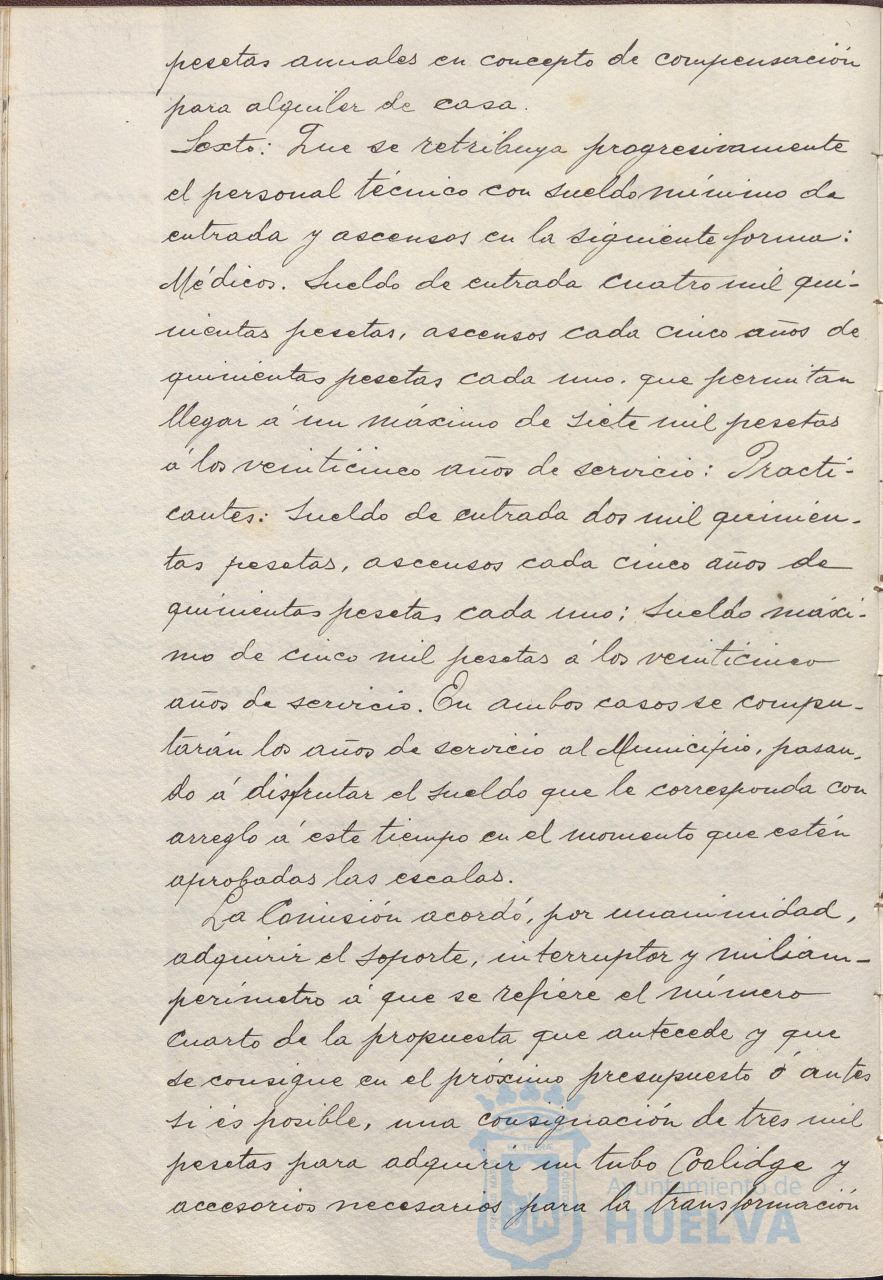 pesetas anuales en concepto de compensación
para alquiler de casa.
Sexto: Que se retribuya progresivamente
el personal técnico con sueldo mínimo de
entrada y ascensos en la siguiente forma:
Médicos. Sueldo de entrada cuatro mil qui-
nientas pesetas, ascensos cada cinco años de
quinientas pesetas cada uno. que permitan
llegar á un máximo de siete mil pesetas
á los veinticinco años de servicio: Practi-
cantes: Sueldo de entrada dos mil quinien-
tas pesetas, ascensos cada cinco años de
quinientas pesetas cada uno; Sueldo máxi-
mo de cinco mil pesetas á los veinticinco
años de servicio. En ambos casos se compu-
tarán los años de servicio al Municipio, pasan-
do á disfrutar el sueldo que le corresponda con
arreglo á este tiempo en el momento que estén
aprobadas las escalas.
La Comisión acordó, por unanimidad,
adquirir el soporte, interruptor y miliam-
perímetro á que se refiere el número
cuarto de la propuesta que antecede y que
se consigue en el próximo presupuesto ó antes
si és posible, una consignación de tres mil
pesetas para adquirir un tubo Coolidge y
accesorios necesarios para la transformación
Ayuntamiento de
HUELVA